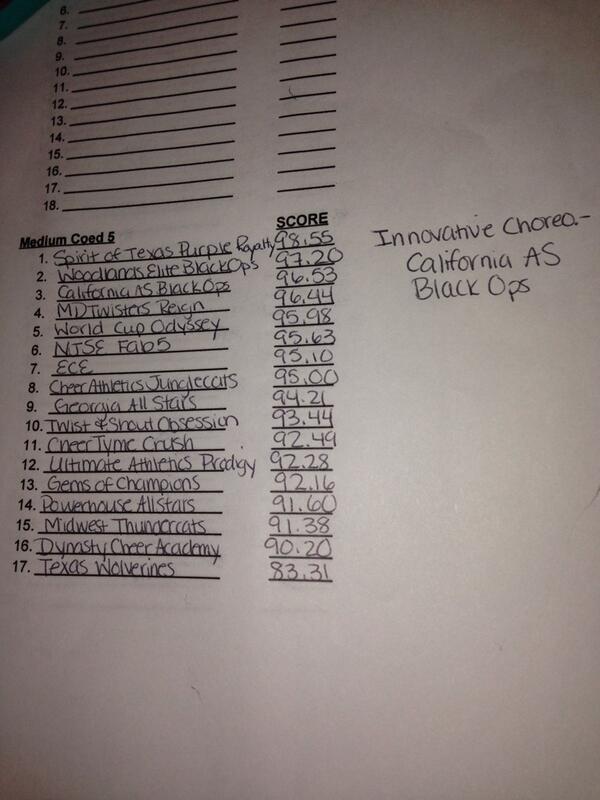 6.
7.
8.
9.
10.
11.
12.
13.
14.
15.
16.
17.
18.
Medium Coed 5 SCORE
1. Spirit of Texas Purple Royalty 98.55
2. Woodlands Elite Black Ops 97.20
3. California AS Black Ops 96.53
4. MD Twisters Reign 96.44
5. World Cup Odyssey 95.98
6. NTSE Fab 5 95.63
7. ECE 95.10
8. Cheer Athletics Junglecats 95.00
9. Georgia All Stars 94.21
10. Twist & Shout Obsession 93.44
11. CheerTyme Crush 92.49
12. Ultimate Athletics Prodigy 92.28
13. Gems of Champions 92.16
14. Powerhouse Allstars 91.60
15. Midwest Thundercats 91.38
16. Dynasty Cheer Academy 90.20
17. Texas Wolverines 83.31
Innovative Choreo.-
California AS
Black Ops